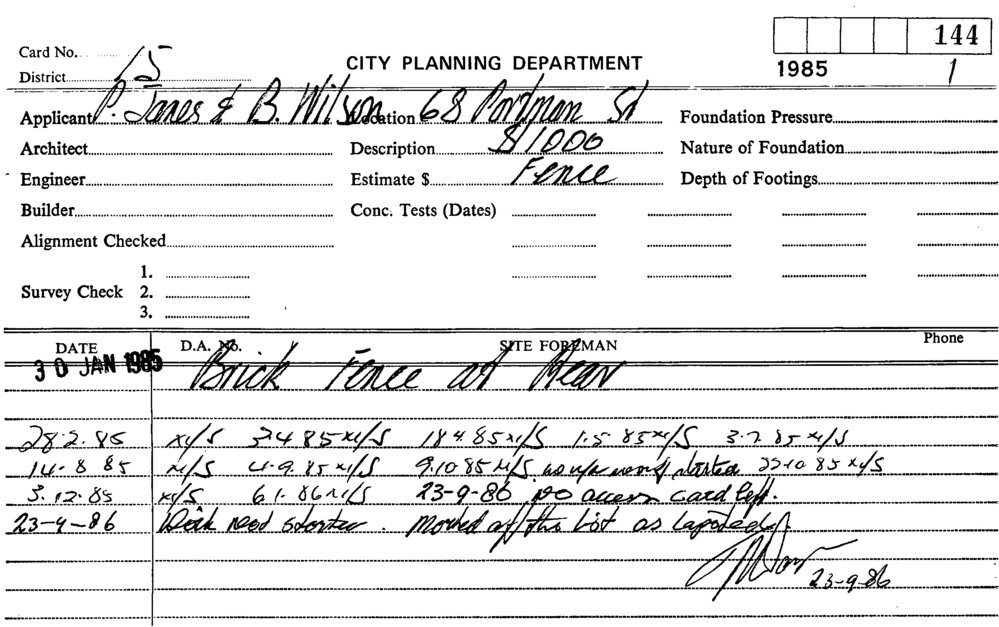 144
Card No.
CITY PLANNING DEPARTMENT
1985 1
District 15
Applicant P. Jones & B. Wilson Location 68 Portman St Foundation Pressure
Architect Description $1000 Nature of Foundation
Engineer Estimate $ Fence Depth of Footings
Builder Conc. Tests (Dates)
Alignment Checked
1.
Survey Check 2.
3.
DATE D.A. No. SITE FOREMAN Phone
30 JAN 1985 Brick Fence at Rear
28.2.85 N/S 3.4.85 N/S 18.4.85 N/S 1.5.85 N/S 3.7.85 N/S
14.8.85 N/S 4.9.85 N/S 9.10.85 N/S started 22.10.85 N/S
3.12.85 N/S 6.1.86 N/S 23-9-86 no access card left.
23-9-86 not started. Marked off the List as lapsed.
23-9-86